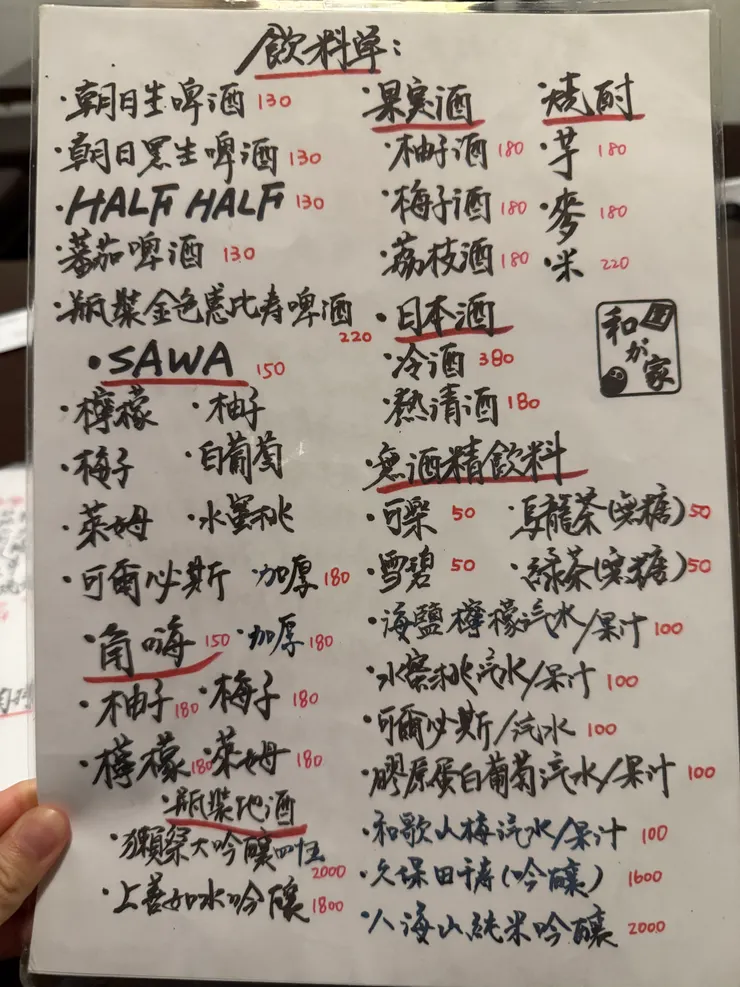 飲料單:
·朝日生啤酒 130
·朝日黑生啤酒 130
·HALF HALF 130
·蕃茄啤酒 130
·瓶裝金色惠比寿啤酒 220
·SAWA 150
·檸檬 ·柚子
·梅子 ·白葡萄
·萊姆 ·水蜜桃
·可爾必斯 ·加厚 180
·角嗨 150 ·加厚 180
·柚子 180 ·梅子 180
·檸檬 180 ·萊姆 180
·瓶裝地酒
·獺祭大吟釀四十五 2000
·上善如水吟釀 1800
·果実酒
·柚子酒 180
·梅子酒 180
·荔枝酒 180
·燒酎
·芋 180
·麥 180
·米 220
·日本酒
·冷酒 380
·熱清酒 180
和が家
·無酒精飲料
·可樂 50 ·烏龍茶(無糖) 50
·雪碧 50 ·綠茶(無糖) 50
·海鹽檸檬汽水/果汁 100
·水蜜桃汽水/果汁 100
·可爾必斯/汽水 100
·膠原蛋白葡萄汽水/果汁 100
·和歌山梅汽水/果汁 100
·久保田千寿(吟釀) 1600
·八海山純米吟釀 2000